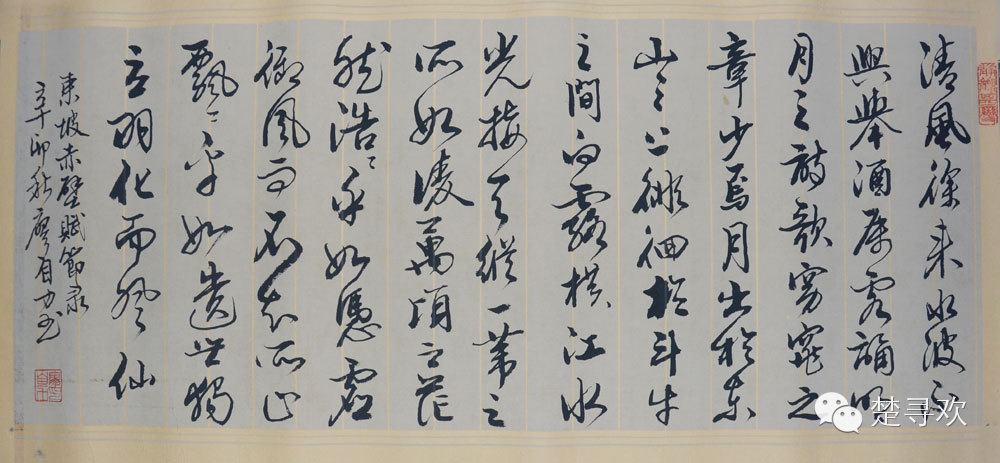 清風徐来水波不
興舉酒属客誦明
月之詩歌窈窕之
章少焉月出於東
山之上徘徊於斗牛
之間白露横江水
光接天縱一葦之
所如凌萬頃之茫
然浩々乎如憑虛
御風而不知所止
飄々乎如遺世獨
立羽化而登仙
東坡赤壁賦節录
辛卯秋廖自力书
楚寻欢